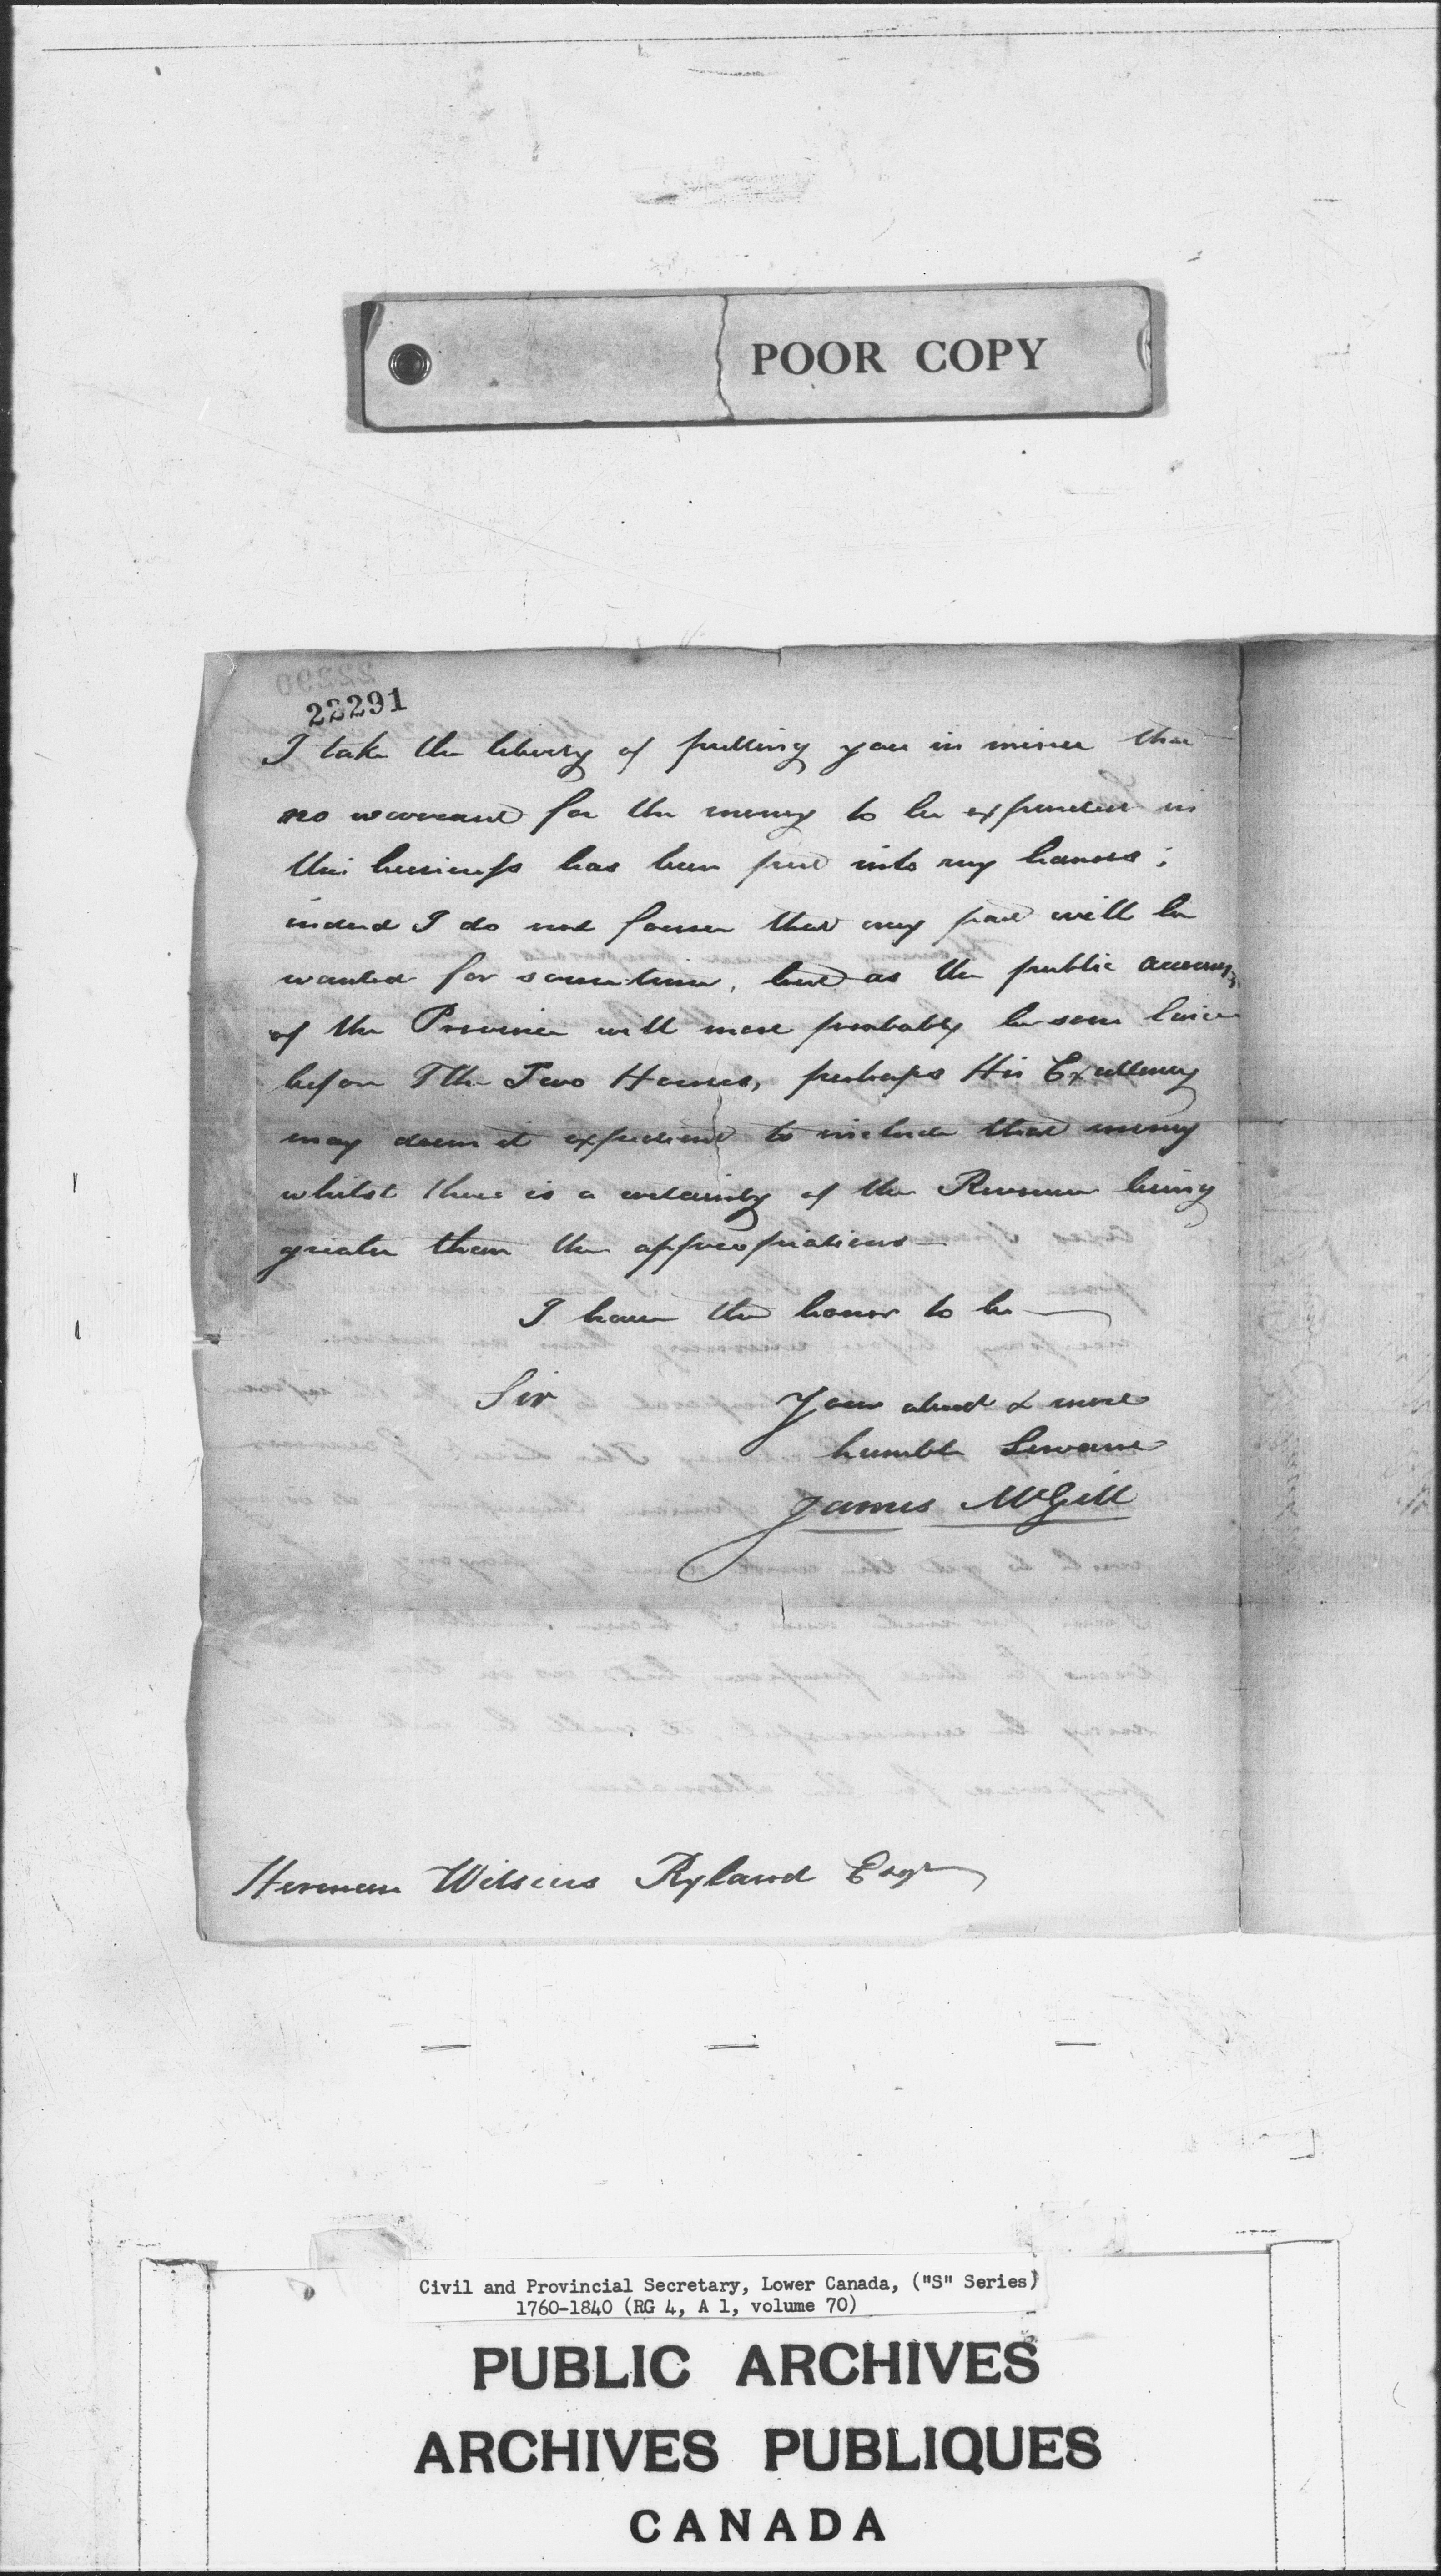 POOR COPY
22290
22291
I take the liberty of putting you in mind that
no warrant for the money to be expended in
this business has been put into my hands;
indeed I do not forsee that any part will be
wanted for sometime, but as the public accounts
of the Province will most probably be soon laid
before The Two Houses, perhaps His Excellency
may deem it expedient to include that money
whilst there is a certainty of the Revenue being
greater than the appropriations
I have the honor to be
Sir
Your obedt & most
humble Servant
James McGill
Herman Witsius Ryland Esqr
Civil and Provincial Secretary, Lower Canada, ("S" Series)
1760-1840 (RG 4, A 1, volume 70)
PUBLIC ARCHIVES
ARCHIVES PUBLIQUES
CANADA